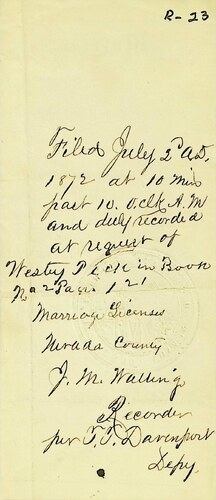 R-23
Filed July 2d A.D.
1872 at 10 Min
past 10. O.clk A.M
and duly recorded
at request of
Westey Peck in Book
No 2 Page 121
Marriage Licenses
Nevada County
J. M. Walling
Recorder
per T. T. Davenport
Depy.